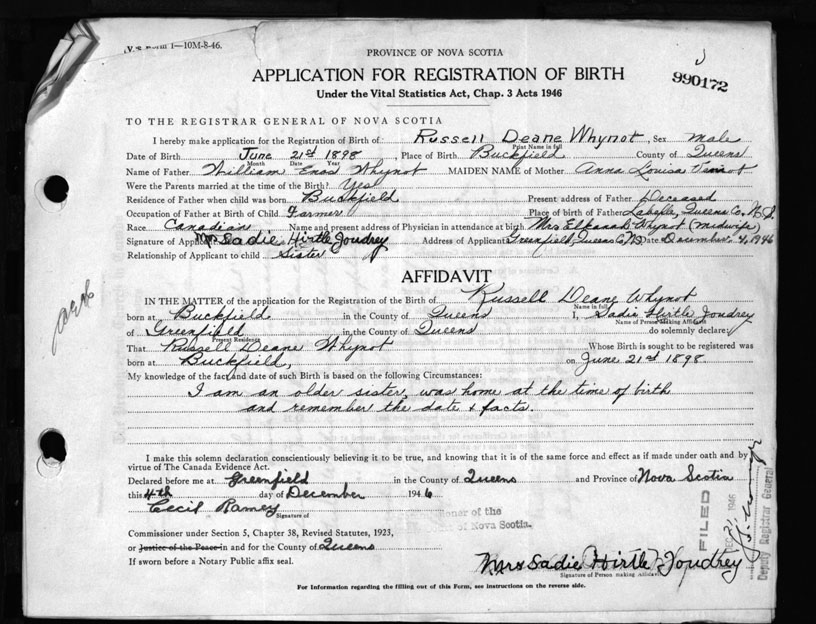 V. S. Form 1—10M-8-46.
PROVINCE OF NOVA SCOTIA
990172
APPLICATION FOR REGISTRATION OF BIRTH
Under the Vital Statistics Act, Chap. 3 Acts 1946
TO THE REGISTRAR GENERAL OF NOVA SCOTIA
I hereby make application for the Registration of Birth of Russell Deane Whynot, Sex male
Print Name in full
Date of Birth June 21st 1898, Place of Birth Buckfield County of Queens
Month Date Year
Name of Father William Enos Whynot MAIDEN NAME of Mother Anna Louisa
Were the Parents married at the time of the Birth? Yes
Residence of Father when child was born Buckfield Present address of Father Deceased
Occupation of Father at Birth of Child Farmer Place of birth of Father Labelle, Queens Co. N.S.
Race Canadian Name and present address of Physician in attendance at birth Mrs Elkanah Whynot (midwife)
Signature of Applicant Mrs Sadie Hirtle Joudrey Address of Applicant Greenfield, Queens Co NS Date December 4, 1946
Relationship of Applicant to child Sister
AFFIDAVIT
IN THE MATTER of the application for the Registration of the Birth of Russell Deane Whynot
Name in full
born at Buckfield in the County of Queens I, Sadie Hirtle Joudrey
Name of Person Making Affidavit
of Greenfield in the County of Queens do solemnly declare:
Present Residence
That Russell Deane Whynot Whose Birth is sought to be registered was
born at Buckfield, on June 21st 1898.
My knowledge of the fact and date of such Birth is based on the following Circumstances:
I am an older sister, was home at the time of birth
and remember the date & facts.
I make this solemn declaration conscientiously believing it to be true, and knowing that it is of the same force and effect as if made under oath and by
virtue of The Canada Evidence Act.
Declared before me at Greenfield in the County of Queens and Province of Nova Scotia
this 4th day of December 1946
Cecil Ramey
Signature of
of the
of Nova Scotia.
Commissioner under Section 5, Chapter 38, Revised Statutes, 1923,
or Justice of the Peace in and for the County of Queens
If sworn before a Notary Public affix seal.
Mrs Sadie Hirtle Joudrey
Signature of Person making Affidavit
For Information regarding the filling out of this Form, see instructions on the reverse side.
FILED
1946
Deputy Registrar General